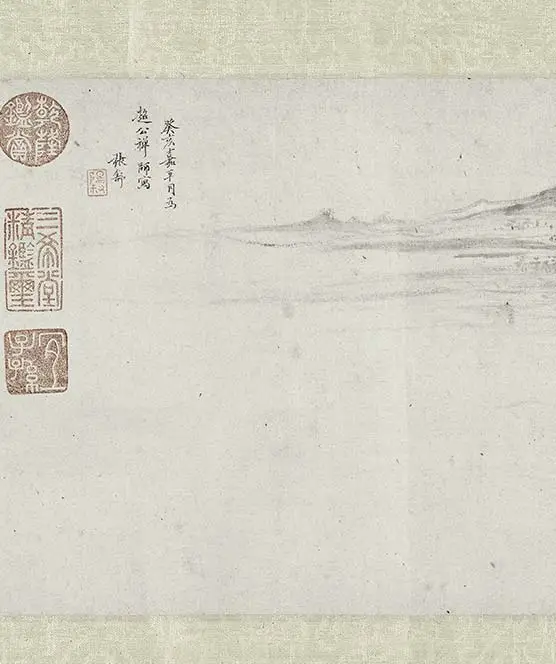 癸亥嘉平月為
超公禪師寫
張
乾隆鑑賞
三希堂精鑑璽
宜子孫